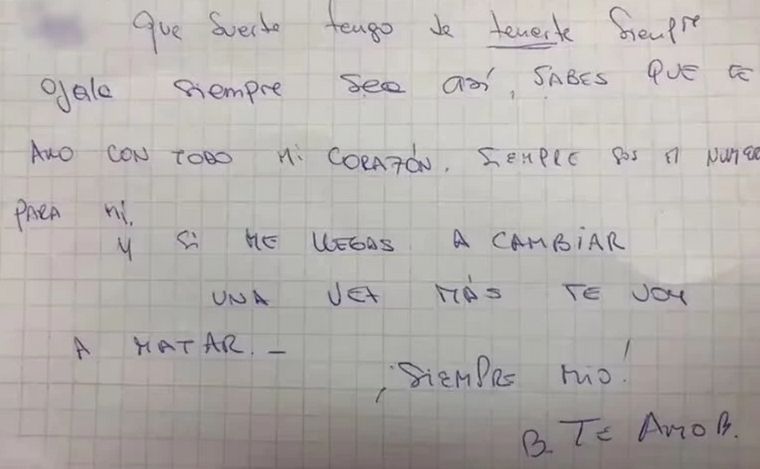 Que suerte tengo de tenerte Siempre
Ojala siempre sea así, SABES QUE TE
AMO CON TODO MI CORAZÓN. SIEMPRE SOS El NUMERO
PARA MÍ.
Y Si ME LLEGAS A CAMBIAR
UNA VEZ MÁS TE VOY
A MATAR. –
¡SIEMPRE MIO!
B TE AMO B.